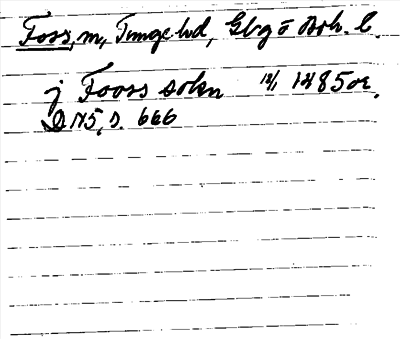 Foss, m, Tunge hd, Gbg o Boh. l.
j Foors sokn 12/1 1485 or.
D 175, s. 666